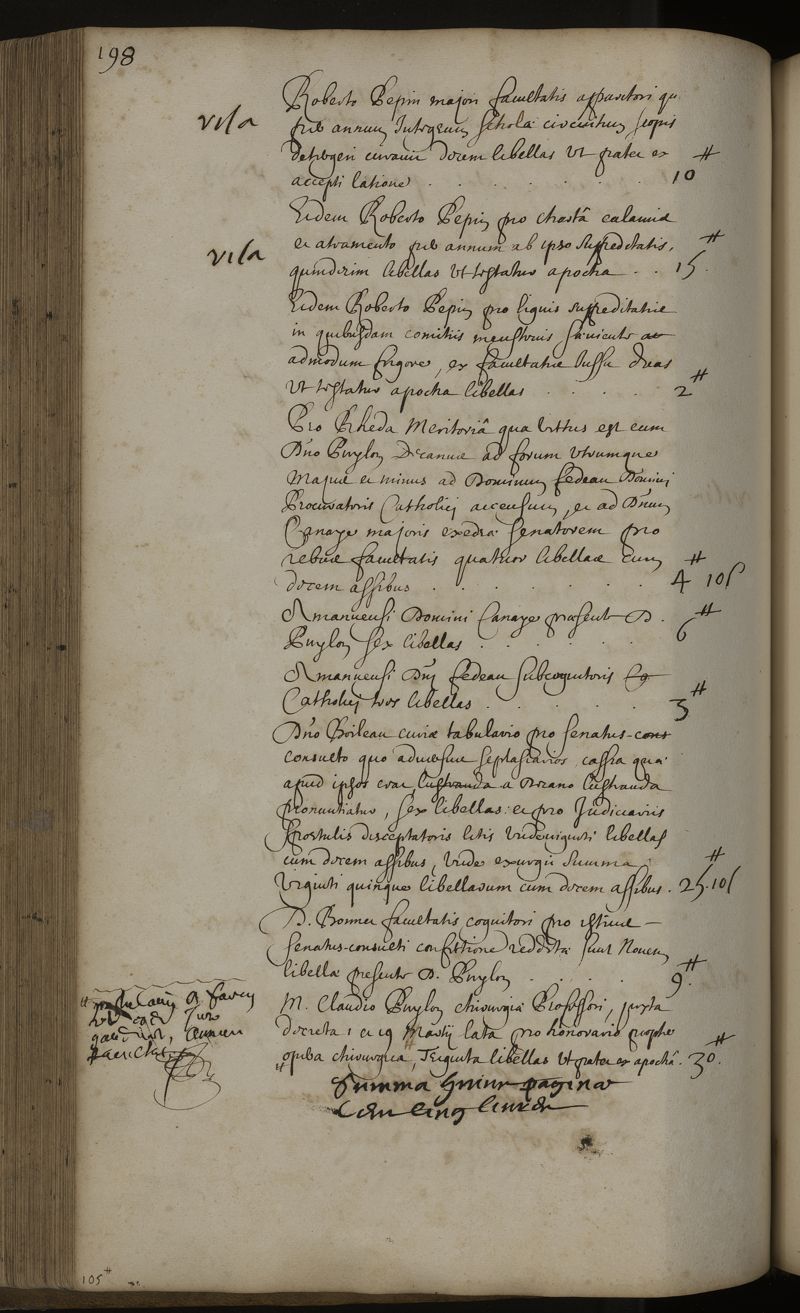 198
Roberto Pepin majori facultatis apparitori qui
visa
per annum Integrum scholæ scopis
detergeri curavit decem libellas Ut patet ex
accepti latione . . . . . . . 10 ₶
Eidem Roberto Pepin pro charta calamis
et atramento per annum ab ipso suppeditatis,
visa
quindecim libellas Ut testatur apocha . . 15 ₶
Eidem Roberto Pepin pro lignis suppeditatis
in quibusdam comitiis menstruis sæviente
admodum frigore, ex facultatis Iussu duas
Ut testatur apocha libellas . . . . 2 ₶
Pro Rheda Meritoriâ qua vectus est cum
Dno Puylon Decanus ad forum utrumque
Majus et minus ad Dominum fedeau Domini
Procuratoris Catholici, et ad Dnum
Canaye majoris exedræ senatorem pro
rebus facultatis quatuor libellas cum
decem assibus . . . . . . . 4 ₶ 10 s
Amanuensi Domini Canaye præsente D.
Puylon sex libellas . . . . . . 6 ₶
Amanuensi Dnj fedeau
Catholicj tres libellas . . . . . 3 ₶
Dno Boileau curiæ tabulario pro senatus-
consulto quo adversus septasiarios cassia quæ
apud ipsos erat lustranda a Decano lustranda
pronuntiatur, sex libellas: et pro Judiciariis
sportulis disceptatoris litis undeviginti libellas
cum decem assibus, Unde exurgit Summa
Viginti quinque libellarum cum decem assibus . 25 ₶ 10 s
D. Bonnet facultatis cognitori pro
Senatus-consulti confectione redditæ sunt Novem
libellæ presente D. Puylon . . . . 9 ₶
M. Claudio Puylon chirurgiæ Professori, juxta
decreta 1 et 19 Martij lata pro honorario propter
opera chirurgica, Triginta libellas Ut patet ex apochâ. 30 ₶
Summa huius paginæ
Cent cinq livres
105 ₶